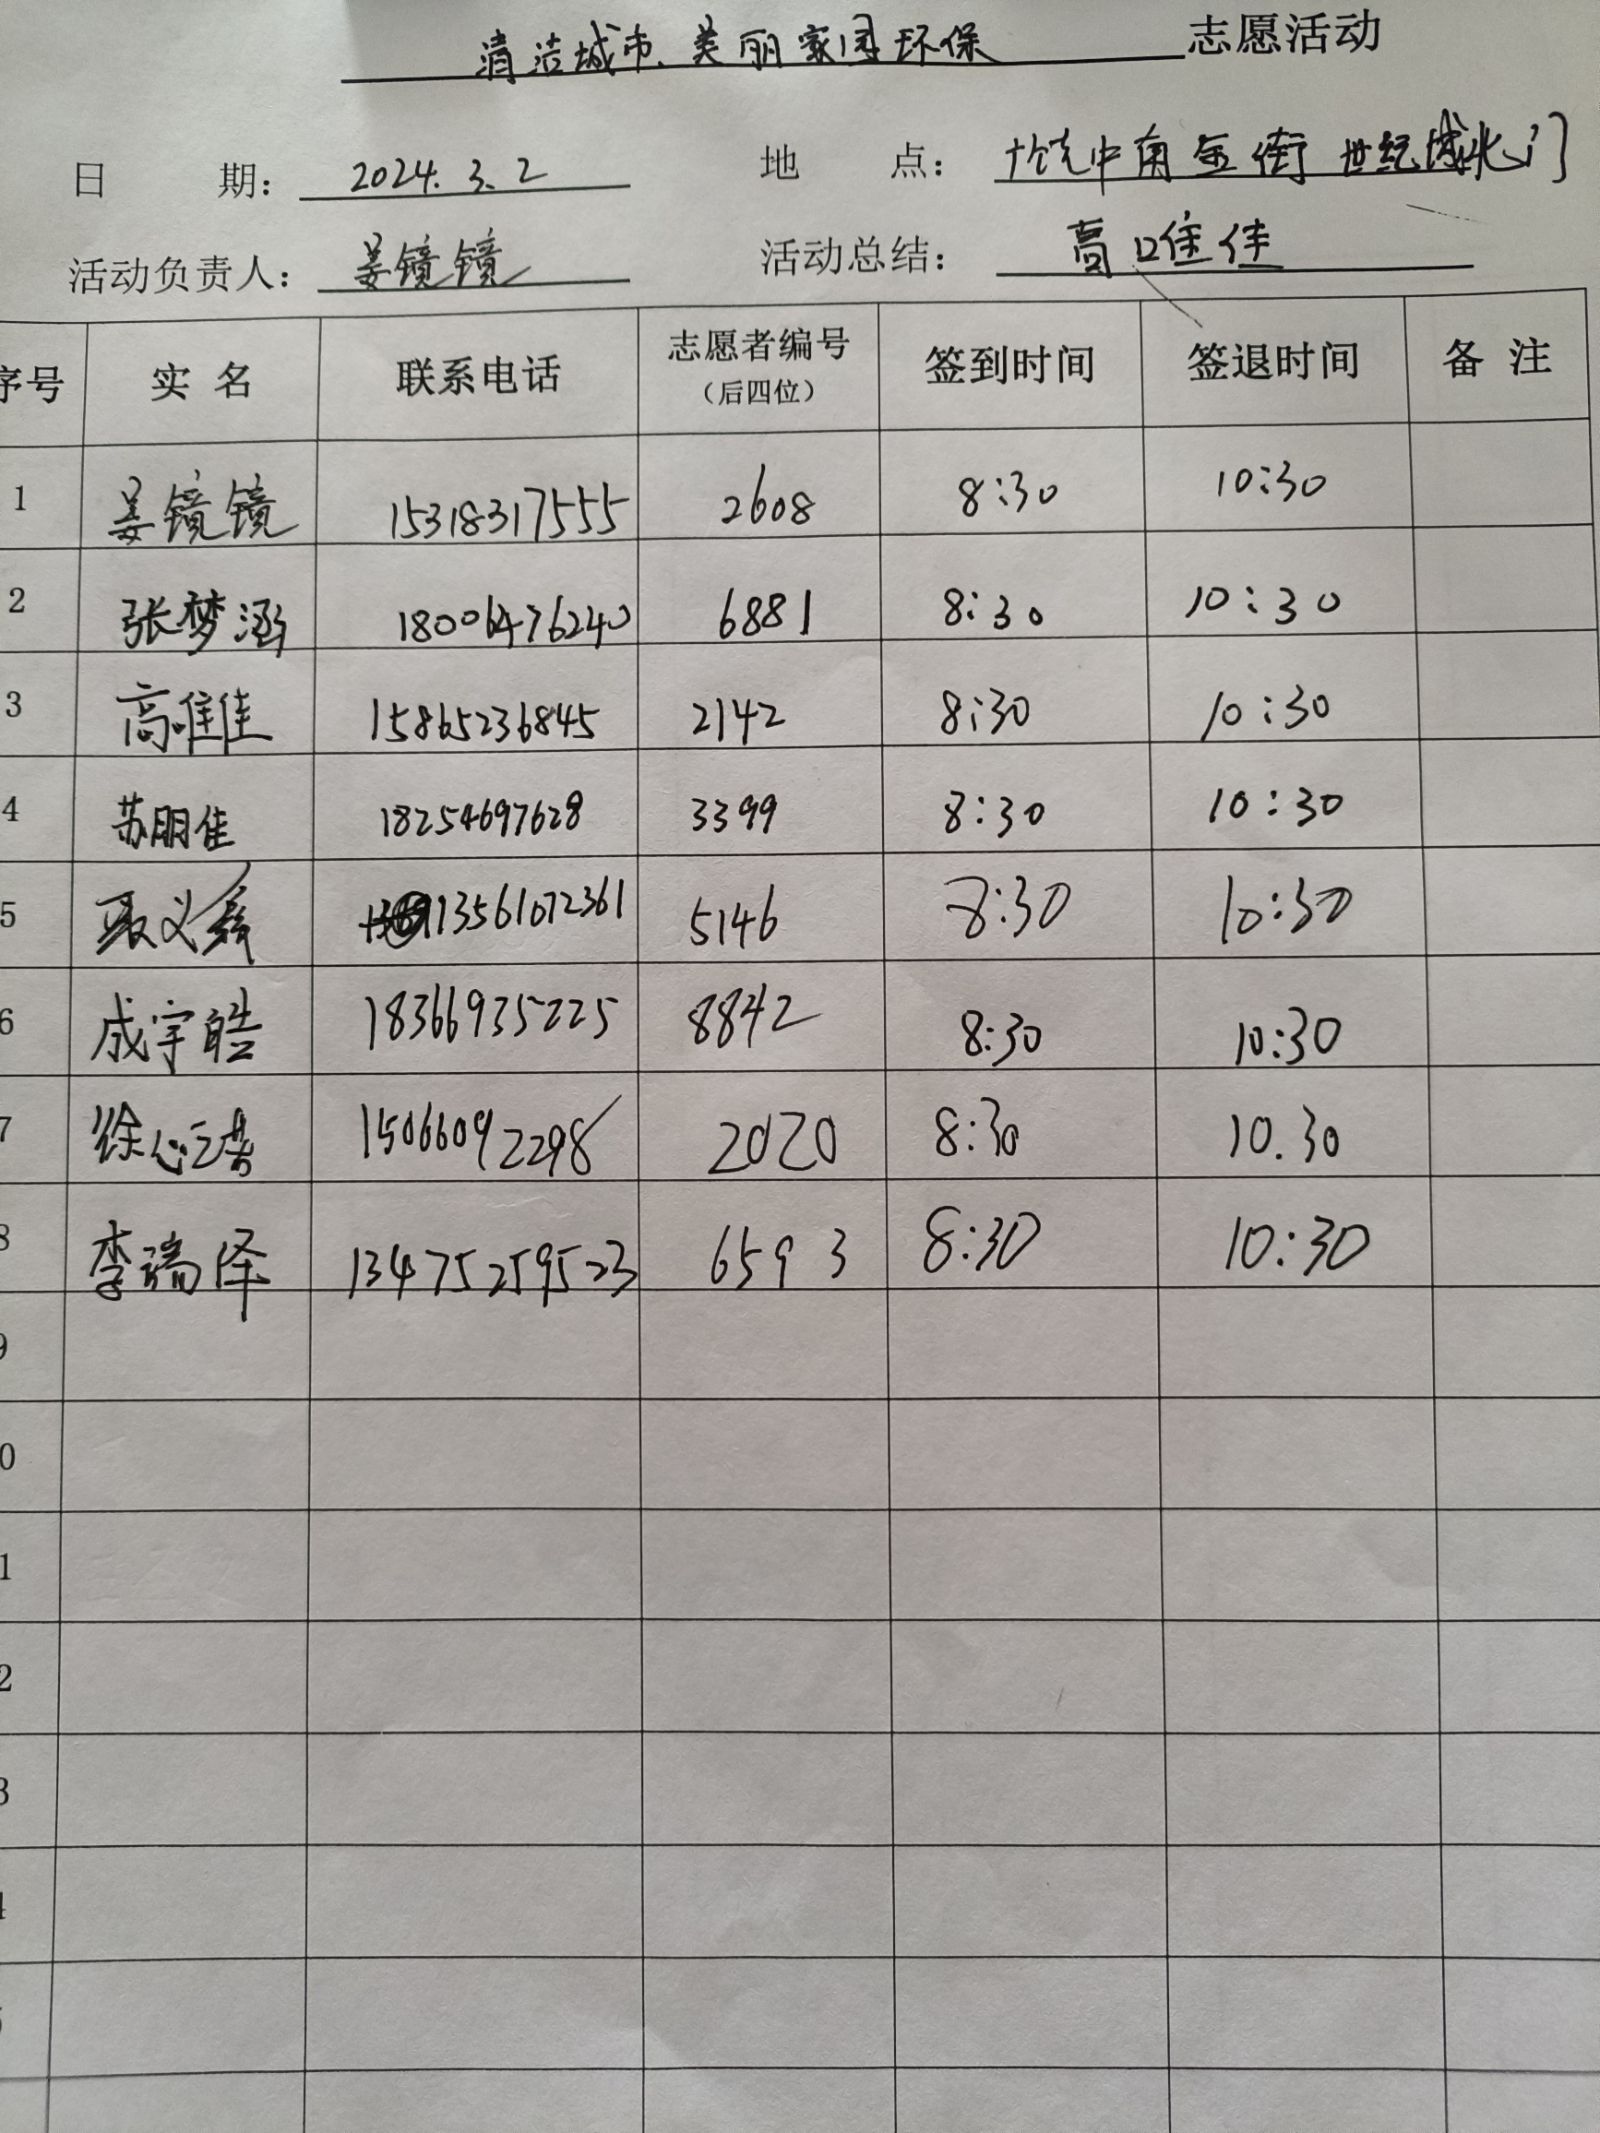 清洁城市、美丽家园环保 志愿活动
日 期: 2024.3.2 地 点: 中角 街 世纪城北门
活动负责人: 姜镜镜 活动总结: 高唯佳
序号 实名 联系电话 志愿者编号 (后四位) 签到时间 签退时间 备注
1 姜镜镜 15318317555 2608 8:30 10:30
2 张梦涵 18006476240 6881 8:30 10:30
3 高唯佳 15865236845 2142 8:30 10:30
4 苏朋佳 18254697628 3399 8:30 10:30
5 13561072361 5146 8:30 10:30
6 成宇皓 18366935225 8842 8:30 10:30
7 徐 15066092298 2020 8:30 10.30
8 李瑞泽 13475259523 6593 8:30 10:30
9
0
1
2
3
4
5